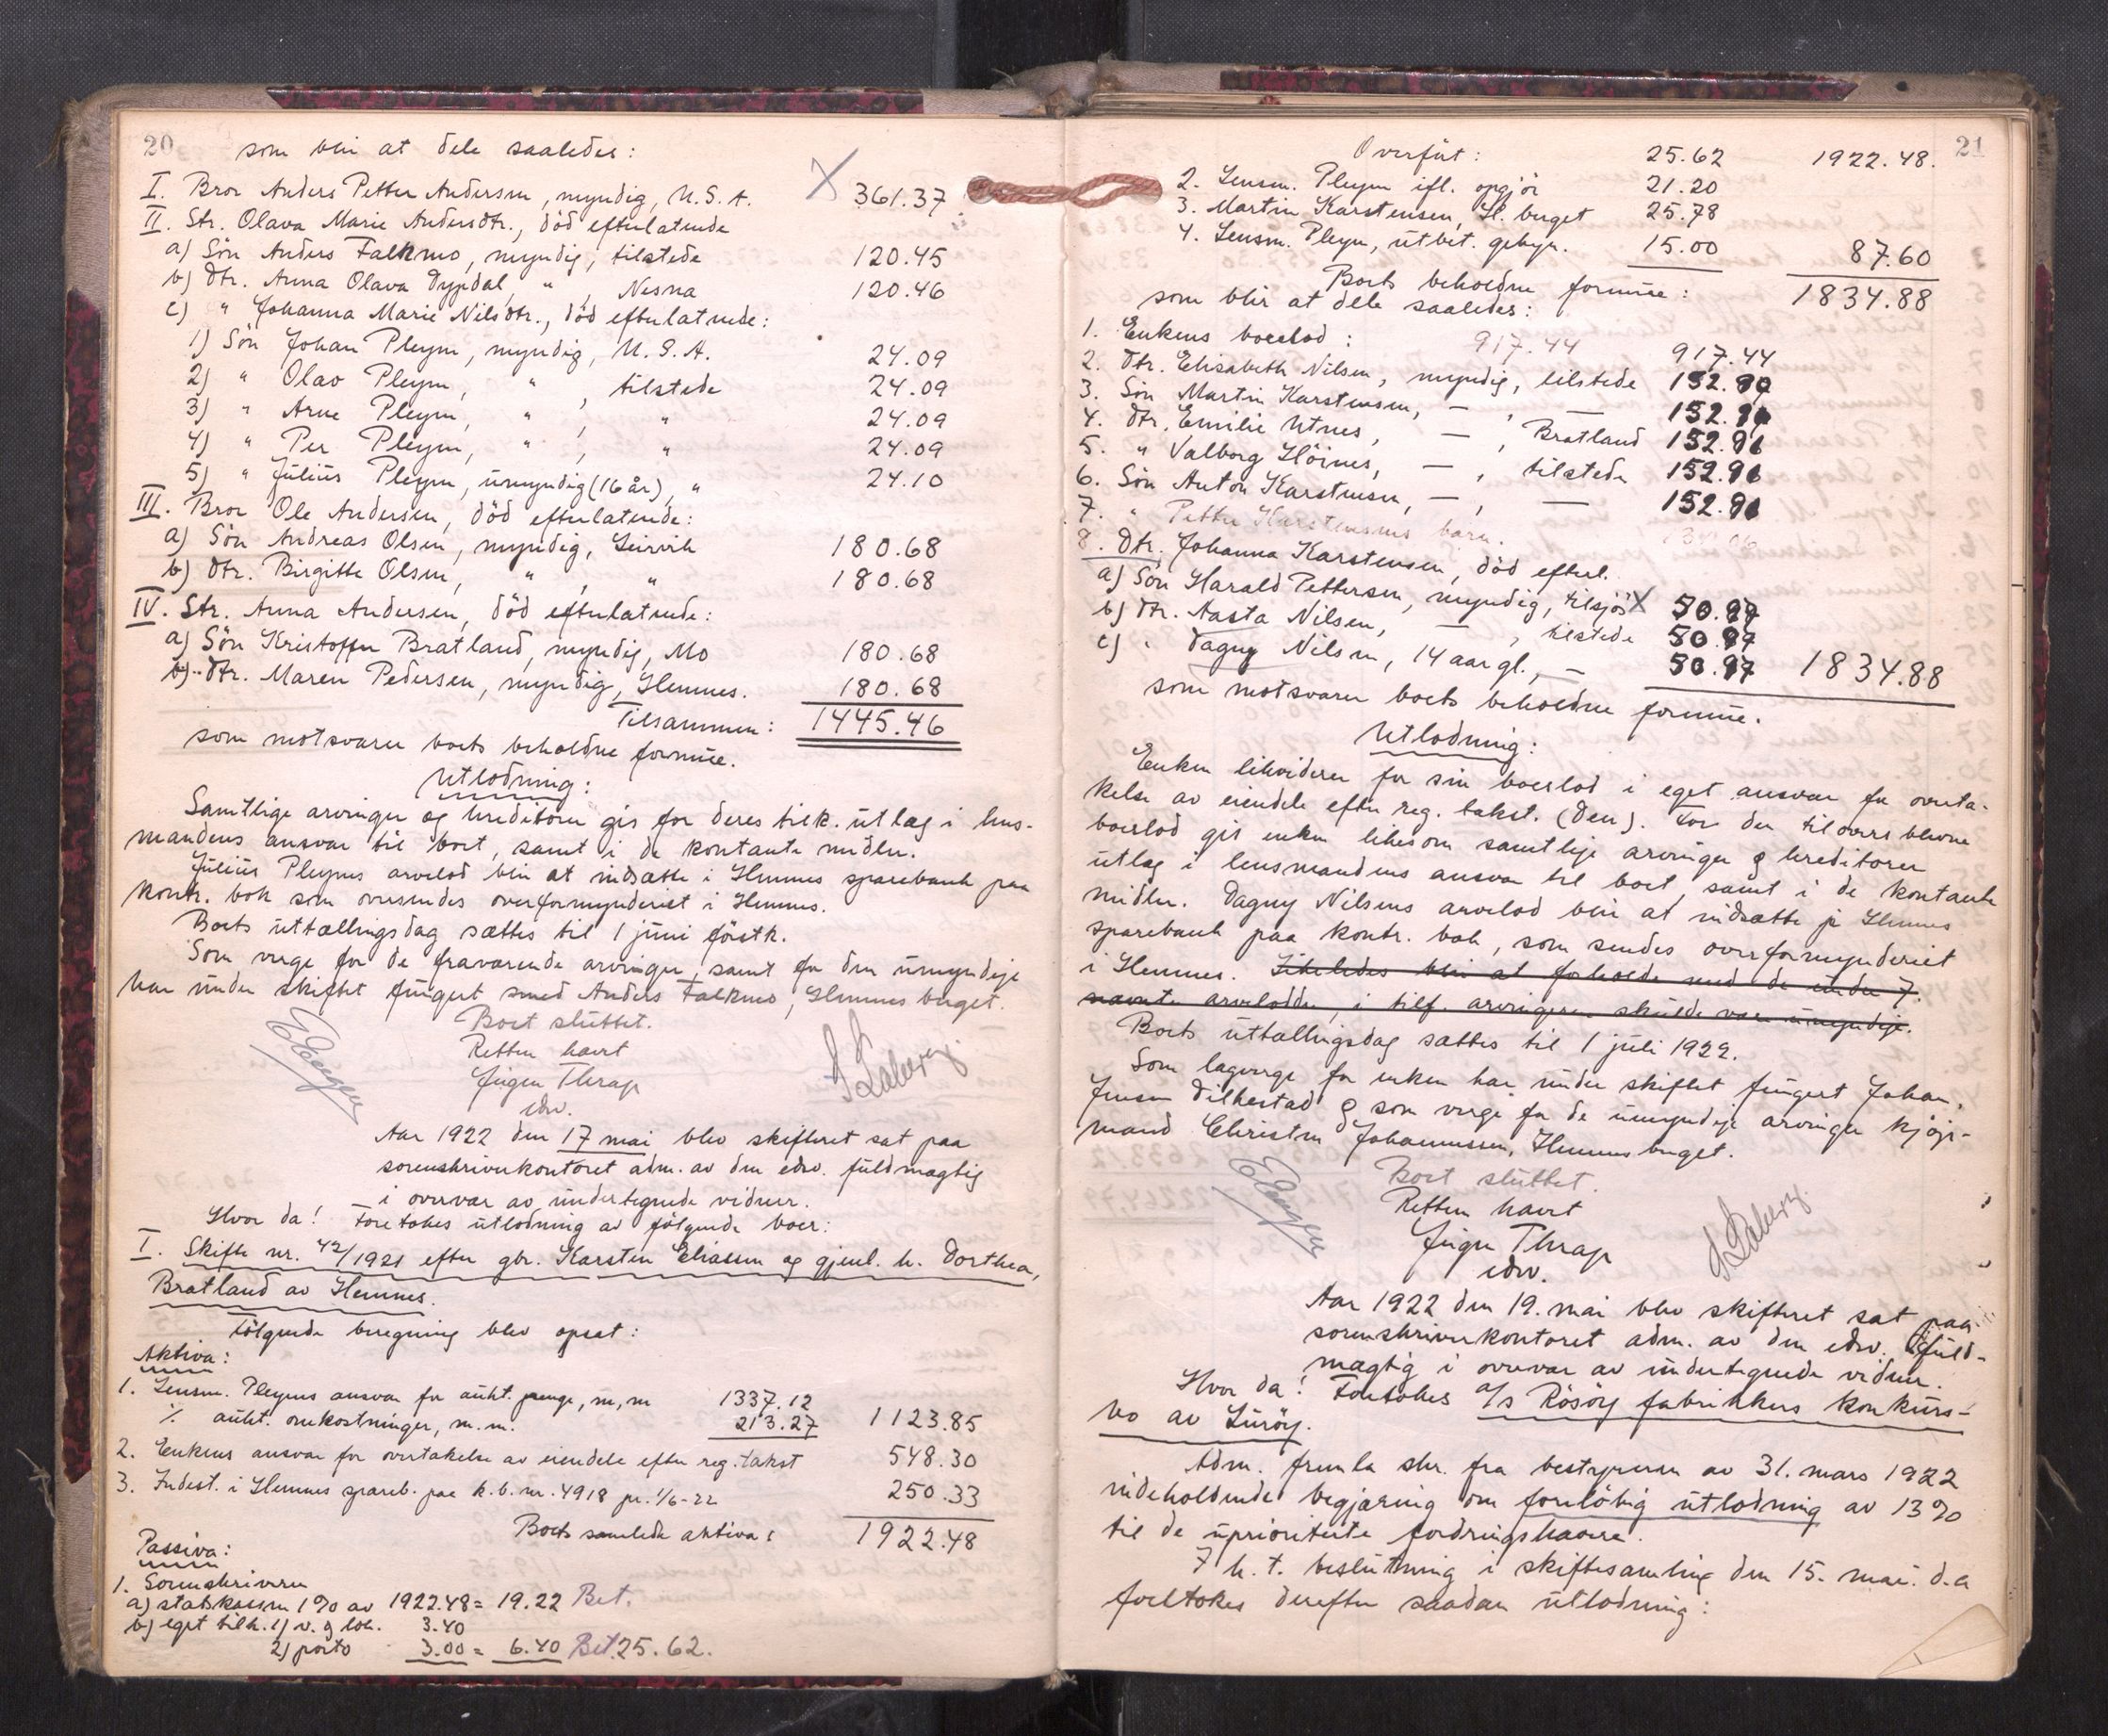 20
som blir at dele saaledes:
I. Bror Anders Petter Andersen, myndig, U.S.A. X 361.37
II. Str. Olava Marie Andersdtr., död efterlatende
a) Sön Anders Falkmo, myndig, tilstede 120.45
b) Dtr. Anna Olava Dypdal, " , Nesna 120.46
c) " Johanna Marie Nilsdtr., död efterlatende:
1) Sön Johan Pleym, myndig, U.S.A. 24.09
2) " Olav Pleym, " , tilstede 24.09
3) " Arne Pleym, " , " 24.09
4) " Per Pleym, " , " 24.09
5) " Julius Pleym, umyndig (16 år), " 24.10
III. Bror Ole Andersen, död efterlatende:
a) Sön Andreas Olsen, myndig, Leirvik 180.68
b) Dtr. Birgitte Olsen, " , " 180.68
IV. Str. Anna Andersen, död efterlatende:
a) Sön Kristoffer Bratland, myndig, Mo 180.68
b) Dtr. Maren Pedersen, myndig, Hemnes. 180.68
Tilsammen: 1445.46
som motsvarer boets beholdne formue.
Utlodning:
Samtlige arvinger og kreditorer gis for deres tilk. utlæg i lens-
mandens ansvar til boet, samt i de kontante midler.
Julius Pleyms arvelod blir at indsætte i Hemnes sparebank paa
kontr. bok som oversendes overformynderiet i Hemnes.
Boets uttællingsdag sættes til 1 juni förstk.
Som verge for de fraværende arvinger, samt for den umyndige
har under skiftet fungert smed Anders Falkmo, Hemnesberget.
Boet sluttet.
Retten hævet
Jörgen Thrap
edv.
Aar 1922 den 17 mai blev skifteret sat paa
sorenskriverkontoret adm. av den edv. fuldmægtig
i overvær av undertegnede vidner.
Hvor da! Foretokes utlodning av fölgende boer:
I. Skifte nr. 42/1921 efter gbr. Karsten Eliassen og gjenl. h. Dorthea,
Bratland av Hemnes.
Fölgende beregning blev opsat:
Aktiva:
1. Lensm. Pleyms ansvar for aukt. penge, m, m 1337.12
÷ aukt. omkostninger, m. m. 213.27 1123.85
2. Enkens ansvar for overtakelse av eiendele efter reg. takst 548.30
3. Indest. i Hemnes spareb. paa k. b. nr. 4918 pr. 1/6-22 250.33
Boets samlede aktiva: 1922.48
Passiva:
1. Sorenskriveren
a) statskassen 1% av 1922.48 = 19.22 Bet.
b) eget tilk. 1) v. og lok. 3.40
2) porto 3.00 = 6.40 Bet 25.62.
21
Overfört: 25.62 1922.48.
2. Lensm. Pleym ifl. opgjör 21.20
3. Martin Karstensen, H. berget 25.78
4. Lensm. Pleym, utbet. gebyr. 15.00 87.60
Boets beholdne formue: 1834.88
som blir at dele saaledes:
1. Enkens boeslod: 917.44 917.44
2. Dtr. Elisabeth Nilsen, myndig, tilstede 152.90
3. Sön Martin Karstensen, — , — 152.91
4. Dtr. Emilie Utnes, — , Bratland 152.91
5. " Valborg Höines, — , tilstede 152.91
6. Sön Anton Karstensen, — , — 152.91
7. " Petter Karstensens barn.
8. Dtr. Johanna Karstensen, död efterl.
a) Sön Harald Pettersen, myndig, tilsjös X 50.97
b) Dtr. Aasta Nilsen, — , tilstede 50.97
c) " Dagny Nilsen, 14 aar gl., — 50.97 1834.88
som motsvarer boets beholdne formue.
Utlodning:
Enken likviderer for sin boeslod i eget ansvar for overta-
kelse av eiendele efter reg. takst. (Den). For den tilovers blevne
boeslod gis enken likesom samtlige arvinger og kreditorer
utlæg i lensmandens ansvar til boet, samt i de kontante
midler. Dagny Nilsens arvelod blir at indsætte i Hemnes
sparebank paa kontr. bok, som sendes overformynderiet
i Hemnes. Likeledes blir at forholde med de under 7.
nævnte arvelodder, i tilf. arvingerne skulde være umyndige.
Boets uttællingsdag sættes til 1 juli 1922.
Som lagverge for enken har under skiftet fungert Johan
Jensen Dilkestad og som verge for de umyndige arvinger kjöp-
mand Christen Johannessen, Hemnesberget.
Boet sluttet.
Retten hævet
Jörgen Thrap
edv.
Aar 1922 den 19. mai blev skifteret sat paa
sorenskriverkontoret adm. av den edv. fuld-
mægtig i overvær av undertegnede vidner.
Hvor da! Foretokes a/s Rösöy fabrikkers konkurs-
bo av Luröy.
Adm. fremla skr. fra bestyreren av 31. mars 1922
indeholdende begjæring om forelöbig utlodning av 13%
til de uprioriterte fordringshavere.
I h. t. beslutning i skiftesamling den 15. mai d.a
foretokes derefter saadan utlodning: